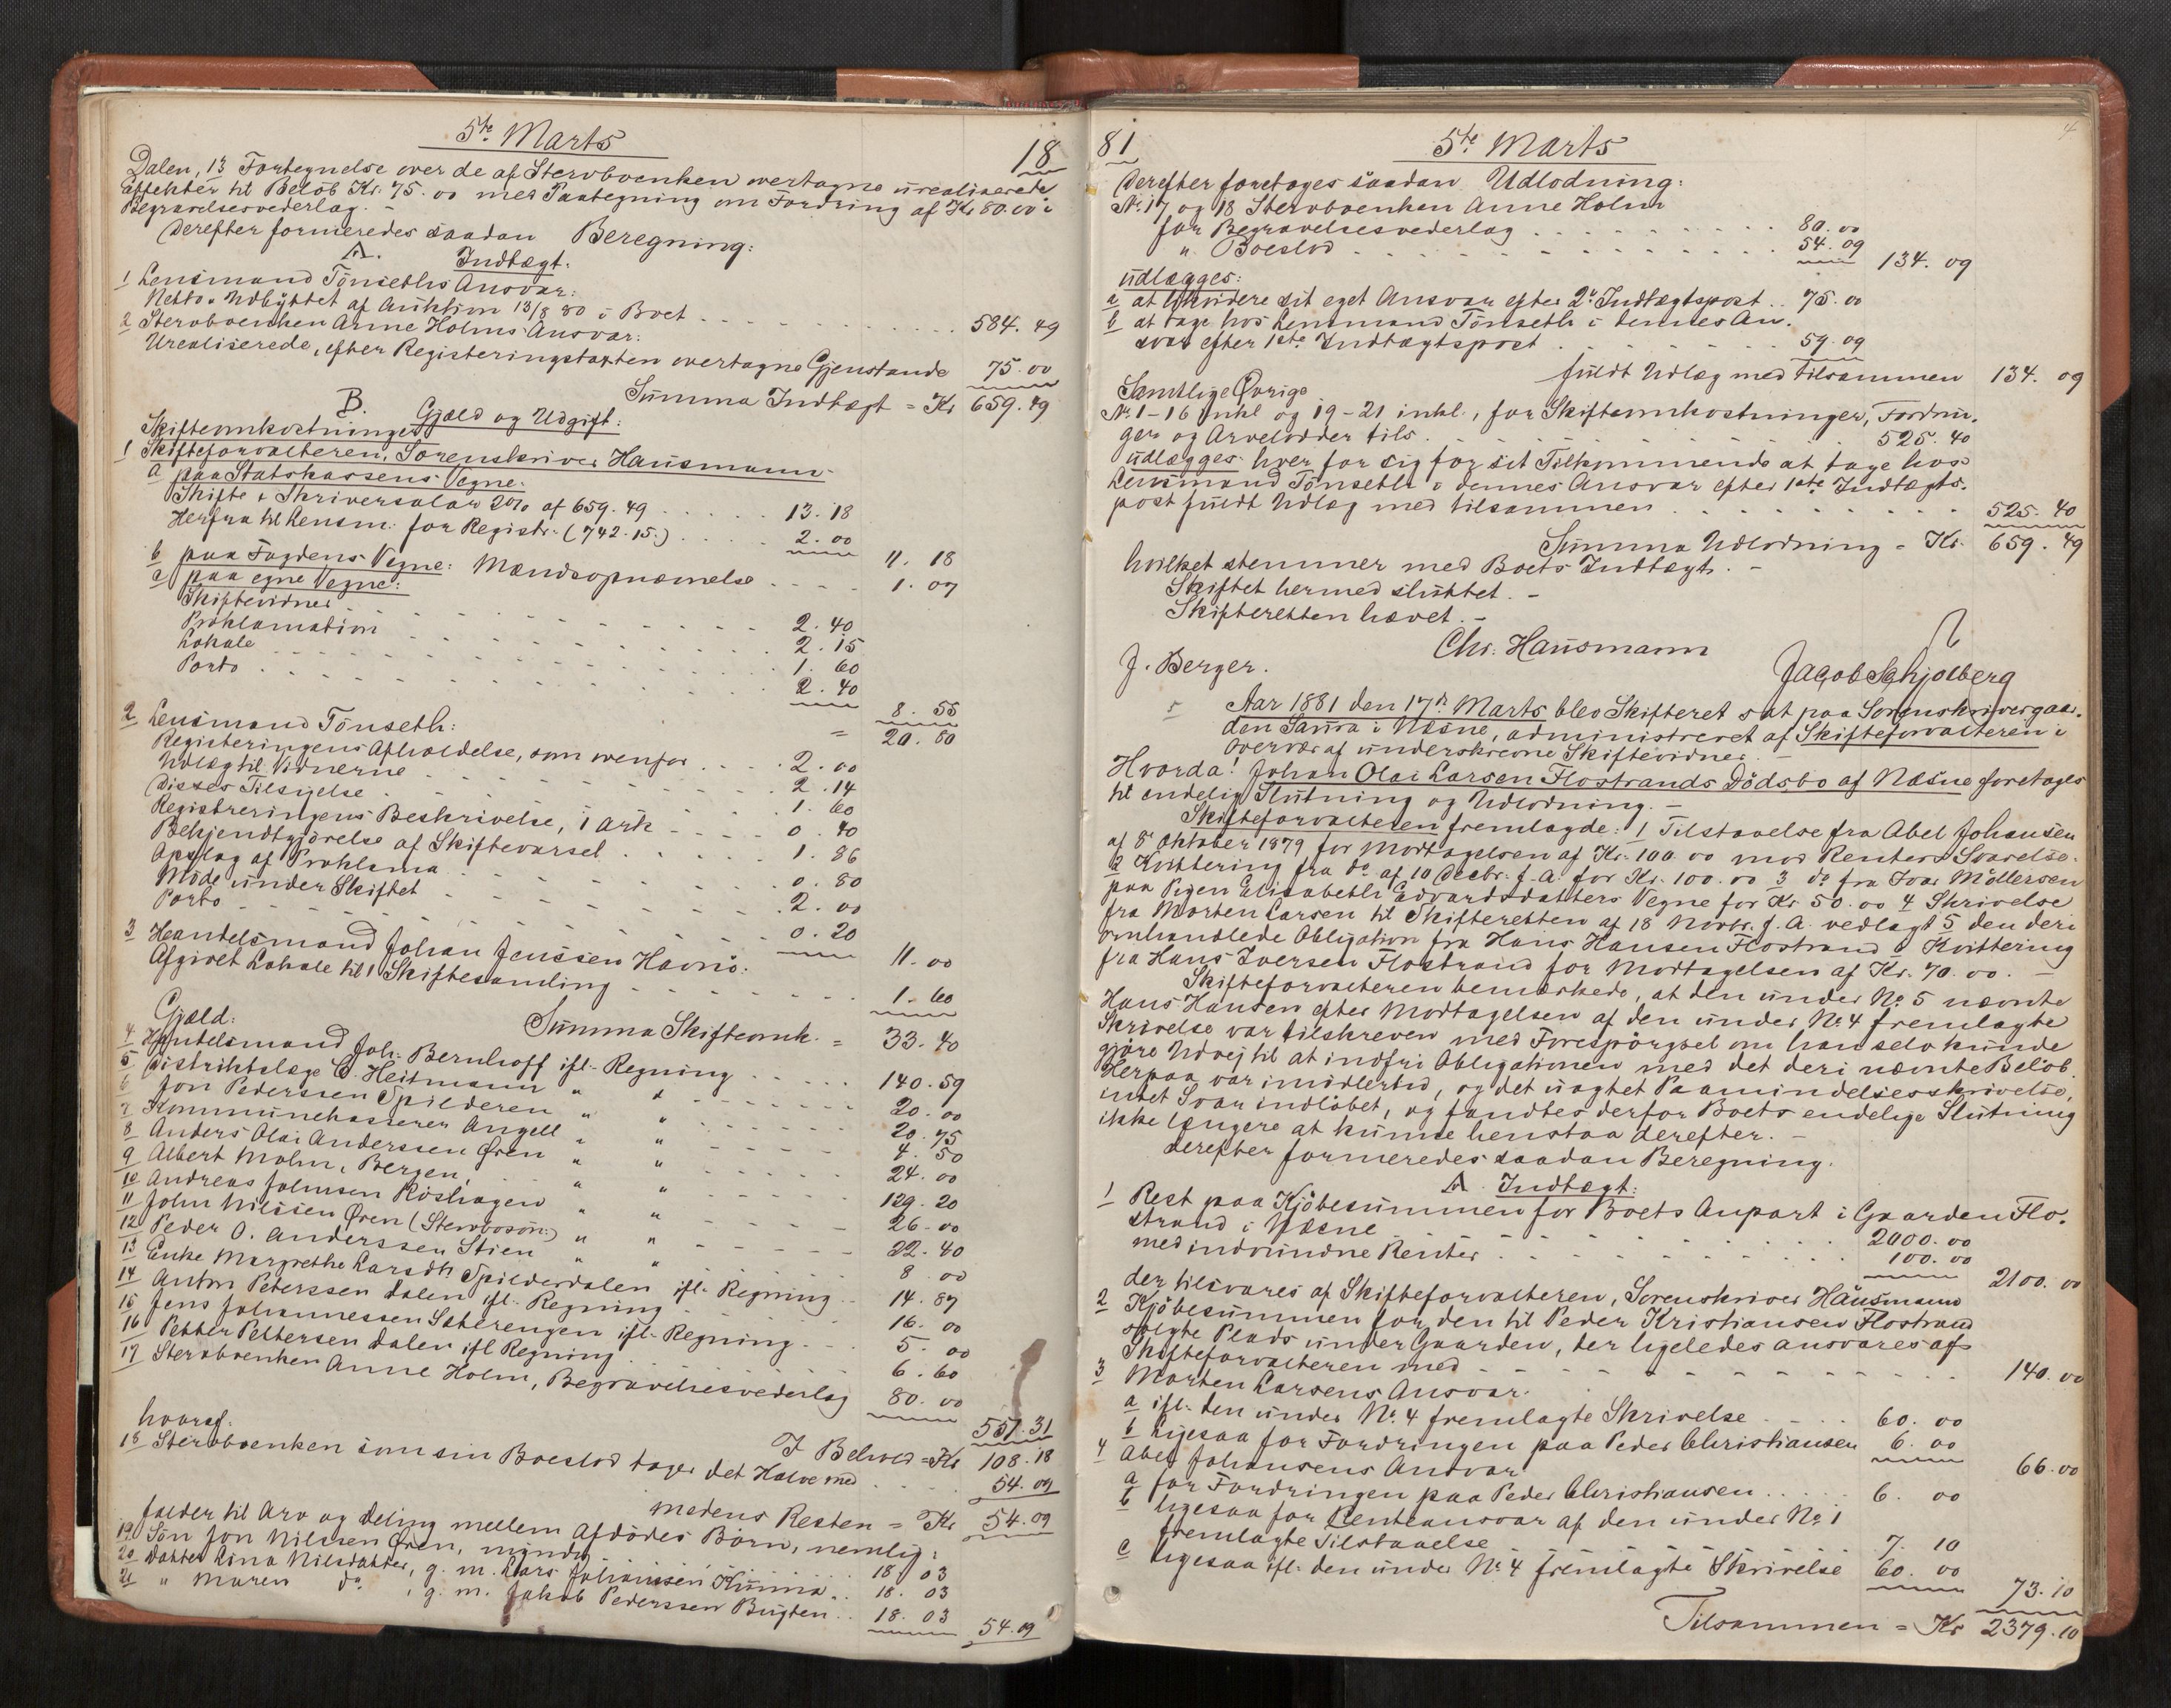 5te Marts
18
Dalen, 13 Fortegnelse over de af Stervboenken overtagne urealiserede
Effekter til Beløb Kr. 75.00 med Paategning om Fordring af Kr 80.00 i
Begravelsesvederlag. -
Derefter formeredes saadan Beregning:
A. Indtægt:
1 Lensmand Tönseths Ansvar:
Netto-Udbyttet af Auktion 13/8 80 i Boet . . . 584. 49
2 Stervboenken Anne Holms Ansvar:
Urealiserede, efter Registeringstaxten overtagne Gjenstande 75.00
Summa Indtægt = Kr 659.49
B. Gjæld og Udgift:
Skifteomkostninger
1 Skifteforvalteren, Sorenskriver Hausmann
a paa Statskassens Vegne:
Skifte & Skriversalar 2% af 659.49 . . . 13. 18
Herfra til Lensm. for Registr. (742.15.) . . . 2. 00
11. 18
b paa Fogdens Vegne: Mændsopnævnelse . . . 1. 07
c paa egne Vegne:
Skiftevidner . . . 2. 40
Proklamation . . . 2. 15
Lokale . . . 1. 60
Porto . . . 2. 40
8. 55
= 20. 80
2 Lensmand Tönseth:
Registeringens Afholdelse, som ovenfor . . . 2. 00
Udlæg til Vidnerne . . . 2. 14
Disses Tilsigelse . . . 1. 60
Registreringens Beskrivelse, 1 Ark . . . 0. 40
Bekjendtgjörelse af Skiftevarsel . . . 1. 86
Opslag af Proklama . . . 0. 80
Möde under Skiftet . . . 2. 00
Porto . . . 0. 20
11. 00
3 Handelsmand Johan Jenssen Havnö:
Afgivet Lokale til 1 Skiftesamling . . . 1. 60
Summa Skifteomk. = 33. 40
Gjæld:
4 Handelsmand Joh. Bernhoff ifl. Regning . . . 140. 59
5 Distriktslæge C. Heitmann " " . . . 20. 00
6 Jon Pederssen Spilderen " " . . . 20. 75
7 Kommunekasserer Angell " " . . . 4. 50
8 Anders Olai Anderssen Øren " " . . . 24. 00
9 Albert Mohn, Bergen, " " . . . 129. 20
10 Andreas Johnsen Röshagen " " . . . 26. 00
11 John Nilssen Øren (Stervbosön) " " . . . 22. 40
12 Peder O. Anderssen Stien " " . . . 8. 00
13 Enke Margrethe Larsdtr Spilderdalen ifl. Regning . . 14. 87
14 Anton Peterssen Dalen ifl. Regning . . . 16. 00
15 Jens Johannessen Sæterengen ifl. Regning . . . 5. 00
16 Petter Pettersen Dalen ifl Regning . . . 6. 60
17 Stervboenken Anne Holm, Begravelsesvederlag 80. 00
551. 31
I Behold = Kr 108. 18
hvoraf:
18 Stervboenken som sin Boeslod tager det Halve med . . . 54. 09
medens Resten = Kr 54. 09
falder til Arv og Deling mellem Afdödes Börn, nemlig:
19 Sön Jon Nilssen Øren, myndig . . . 18. 03
20 Datter Lina Nilsdatter, g. m. Lars Johansen Kumma . . 18. 03
21 " Maren do, g. m. Jakob Pederssen Bugten . . 18. 03
54. 09
81
5te Marts
4
Derefter foretages saadan Udlodning:
No 17 og 18 Stervboenken Anne Holm
for Begravelsesvederlag . . . 80. 00
" Boeslod . . . 54. 09
134. 09
udlægges:
a at likvidere sit eget Ansvar efter 2den Indtægtspost . . 75. 00
b at tage hos Lensmand Tönseth i dennes An-
svar efter 1ste Indtægtspost . . . 59. 09
fuldt Udlæg med tilsammen 134. 09
Samtlige Øvrige
No 1-16 inkl og 19-21 inkl., for Skifteomkostninger, Fordrin-
ger og Arvelodder tils. . . . 525. 40
udlægges hver for sig for sit Tilkommende at tage hos
Lensmand Tönseth i dennes Ansvar efter 1ste Indtægts-
post fuldt Udlæg med tilsammen . . . 525. 40
Summa Udlodning = Kr. 659. 49
hvilket stemmer med Boets Indtægt. -
Skiftet hermed sluttet. -
Skifteretten hævet. -
Chr. Hausmann
J. Berger.
Jacob Schjolberg
Aar 1881 den 17de Marts blev Skifteret sat paa Sorenskrivergaar-
den Saura i Næsne, administreret af Skifteforvalteren i
Overvær af underskrevne Skiftevidner. -
Hvorda! Johan Olai Larsen Flostrands Dödsbo af Næsne foretages
til endelig Slutning og Udlodning. -
Skifteforvalteren fremlagde: 1 Tilstaaelse fra Abel Johansen
af 8de Oktober 1879 for Modtagelsen af Kr. 100.00 mod Renters Svarelse.
2 Kvittering fra do af 10 Decbr. f. A. for Kr. 100.00 3 do fra Ivar Möllersen
paa Pigen Elisabeth Edvardsdatters Vegne for Kr 50.00 4 Skrivelse
fra Morten Larsen til Skifteretten af 18 Novbr. f. A. vedlagt 5 den deri
omhandlede Obligation fra Hans Hansen Flostrand 6 Kvittering
fra Hans Iversen Flostrand for Modtagelsen af Kr. 70.00. -
Skifteforvalteren bemærkede, at den under No 5 nævnte
Hans Hansen efter Modtagelsen af den under No 4 fremlagte
Skrivelse var tilskreven med Forespörgsel om han selv kunde
gjöre Udvej til at indfri Obligationen med det deri nævnte Belöb.
Herpaa var imidlertid, og det uagtet Paamindelsesskrivelse,
intet Svar indlöbet, og fandtes derfor Boets endelige Slutning
ikke længere at kunne henstaa derefter. -
Derefter formeredes saadan Beregning.
A. Indtægt:
1 Rest paa Kjöbesummen for Boets Anpart i Gaarden Flo-
strand i Næsne . . . 2000. 00
med indvundne Renter . . . 100. 00
2100. 00
der tilsvares af Skifteforvalteren, Sorenskriver Hausmann
2 Kjöbesummen for den til Peder Kristiansen Flostrand
solgte Plads under Gaarden, der ligeledes ansvares af
Skifteforvalteren med . . . 140. 00
3 Morten Larsens Ansvar.
a ifl. den under No. 4 fremlagte Skrivelse . . . 60. 00
b Ligesaa for Fordringen paa Peder Christiansen 6. 00
66. 00
4 Abel Johansens Ansvar
a for Fordringen paa Peder Christiansen . . . 6. 00
b ligesaa for Renteansvar af den under No 1
fremlagte Tilstaaelse . . . 7. 10
c ligesaa ifl. den under No 4 fremlagte Skrivelse 60. 00
73. 10
Tilsammen = Kr 2379. 10